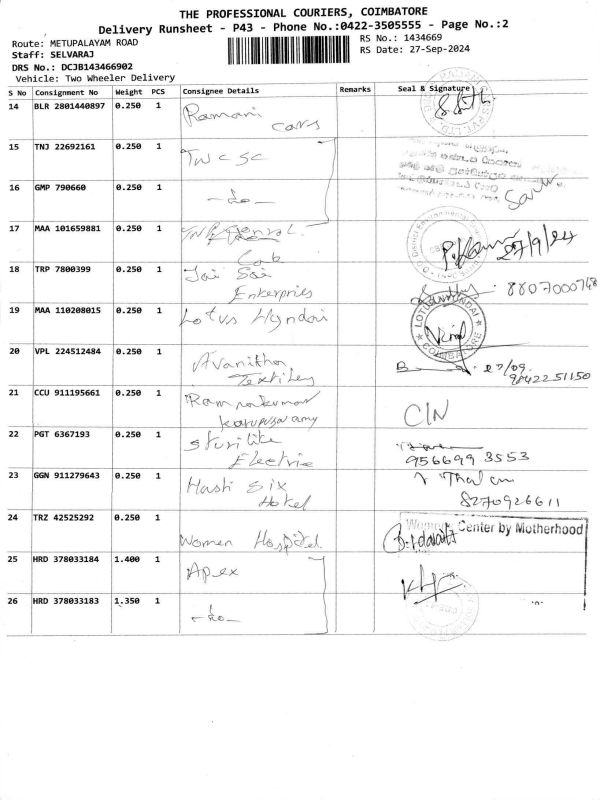 THE PROFESSIONAL COURIERS, COIMBATORE
Delivery Runsheet - P43 - Phone No.:0422-3505555 - Page No.:2
Route: METUPALAYAM ROAD
RS No.: 1434669
Staff: SELVARAJ
RS Date: 27-Sep-2024
DRS No.: DCJB143466902
Vehicle: Two Wheeler Delivery
S No Consignment No Weight PCS Consignee Details Remarks Seal & Signature
14 BLR 2801440897 0.250 1 Ramani
cars
15 TNJ 22692161 0.250 1 TWCSC
16 GMP 790660 0.250 1 -do-
17 MAA 101659881 0.250 1
Lab
27/9/24
18 TRP 7800399 0.250 1 Jai Sai
Enterpries
8807000748
19 MAA 110208015 0.250 1 Lotus Hyndai
LOTUS HYUNDAI
COIMBATORE
20 VPL 224512484 0.250 1 Avanitha
Textiles
27/09
9842251150
21 CCU 911195661 0.250 1
CIN
22 PGT 6367193 0.250 1
Electric
956699 3553
23 GGN 911279643 0.250 1 Hash Six
Hotel
8270926611
24 TRZ 42525292 0.250 1 Women Hospital
Center by Motherhood
25 HRD 378033184 1.400 1 Apex
26 HRD 378033183 1.350 1 -do-